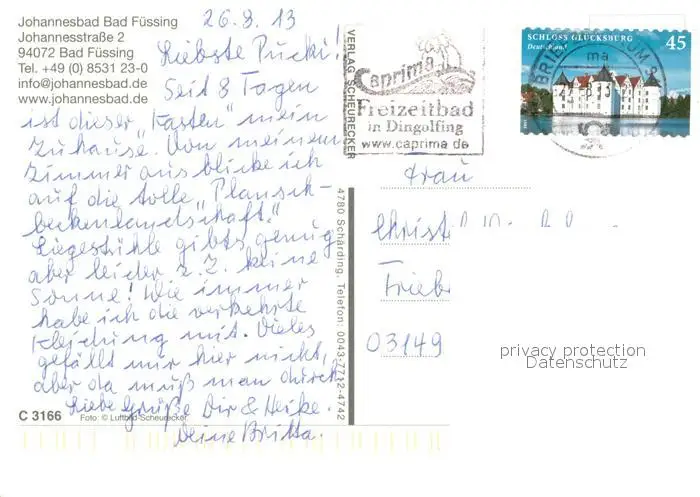 Johannesbad Bad Füssing
Johannesstraße 2
94072 Bad Füssing
Tel. +49 (0) 8531 23-0
info@johannesbad.de
www.johannesbad.de
26.8.13
Liebste Pucki!
Seit 8 Tagen
ist dieser "Kasten" mein
Zuhause. Von meinem
Zimmer aus blicke ich
auf die tolle "Plansch-
beckenlandschaft."
Liegestühle gibts genug
aber leider z.Z. keine
Sonne! Wie immer
habe ich die verkehrte
Kleidung mit. Vieles
gefällt mir hier nicht,
aber da muß man durch
Liebe Grüße Dir & Heike.
Deine Britta.
C 3166
Foto: © Luftbild-Scheurecker
VERLAG SCHEURECKER
4780 Schärding, Telefon: 0043-7712-4742
Caprima
Freizeitbad
in Dingolfing
www.caprima de
SCHLOSS GLÜCKSBURG
Deutschland
45
BRIEFZENTRUM
Frau
Christ
Frieb
03149
privacy protection
Datenschutz